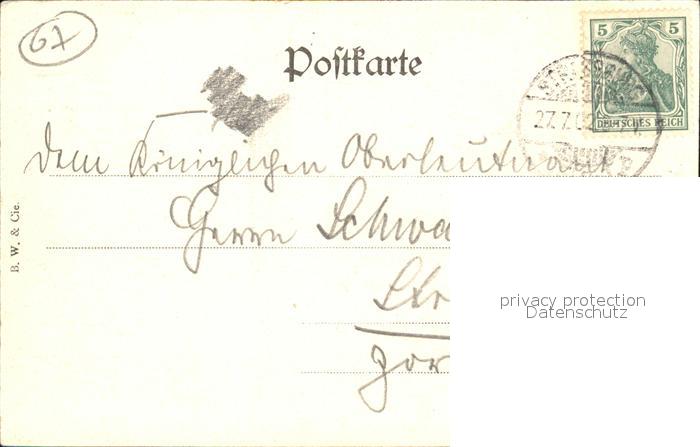 67
Postkarte
5 5
DEUTSCHES REICH
27.7.
Dem Königlichen Oberleutnant
Herrn Schwa
Str
B. W. & Cie.
privacy protection
Datenschutz